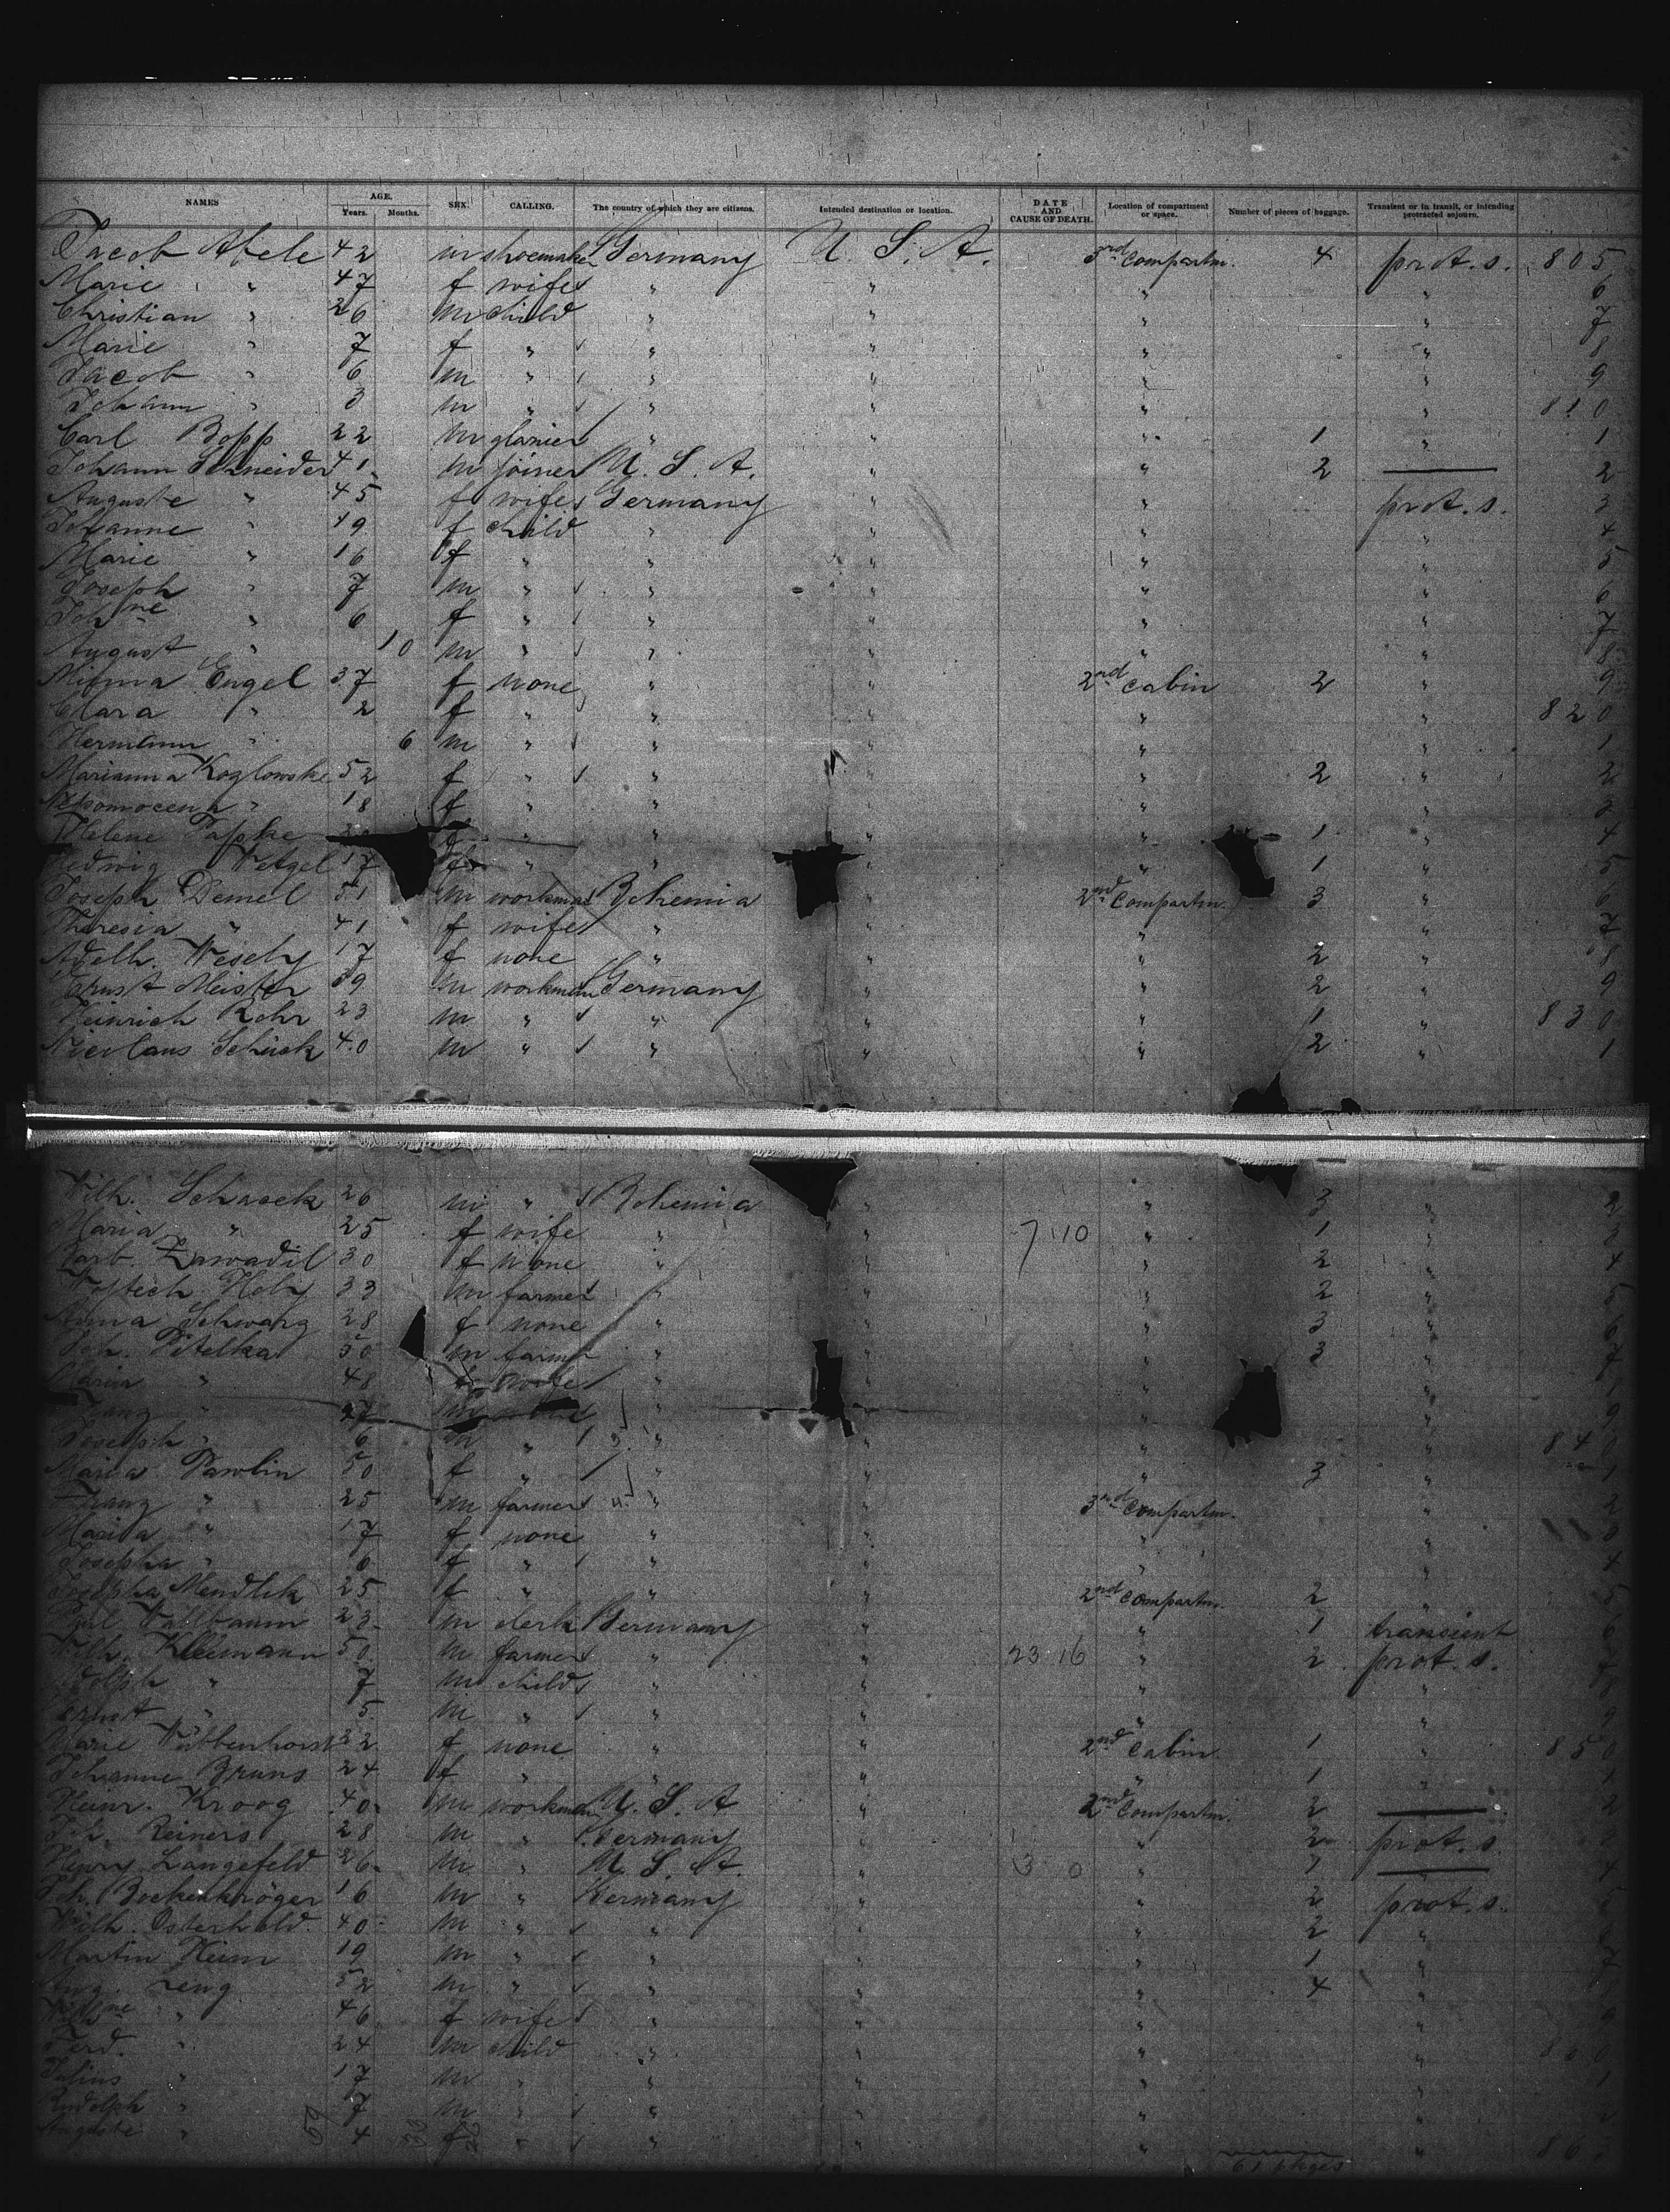 NAMES AGE. Years. Months. SEX. CALLING. The country of which they are citizens. Intended destination or location. DATE AND CAUSE OF DEATH. Location of compartment or space. Number of pieces of baggage. Transient or in transit, or intending protracted sojourn.
Jacob Abele 42 m shoemaker Germany U. S. A. 3rd Compartm. 4 prot. s. 805
Marie " 47 f wife " " " " 6
Christian " 26 m child " " " " 7
Marie " 7 f " " " " " 8
Jacob " 6 m " " " " " 9
Johann " 3 m " " " " " 810
Carl Bopp 22 m " " " 1 " 1
Johann Schneider 41 m joiner U. S. A. " " 2 — 2
Auguste " 45 f wife Germany " " prot. s. 3
Johanne " 19 f child " " " " 4
Marie " 16 f " " " " " 5
Joseph " 7 m " " " " " 6
Johne " 6 f " " " " " 7
August " 10 m " " " " " 8
Minna Engel 37 f none " " 2nd Cabin 2 " 9
Clara " 2 f " " " " " 820
Hermann " 6 m " " " " " 1
Marianna Kozlowske 52 f " " " " 2 " 2
Nepomocena " 18 f " " " " " 3
Helene Papke f " " " " 1 " 4
Hedwig Wetzel 17 f " " " " 1 " 5
Joseph Demel 51 m workman Bohemia " 2nd Compartm. 3 " 6
Theresia " 41 f wife " " " " 7
Adelh. Wesely 17 f none " " " 2 " 8
Ernst Meister 39 m workman Germany " " 2 " 9
Heinrich Rohr 23 m " " " " 1 " 830
Nicolaus Schück 40 m " " " " 2 " 1
Wilh. 26 m " Bohemia " " 3 " 2
Maria " 25 f wife " " 7 10 " 1 " 3
Barb. Zawadil 30 f none " " " 2 " 4
Holy 33 m farmer " " " 2 " 5
Anna Schwarz 28 f none " " " 3 " 6
Joh. Pitelka 50 m farmer " " " 3 " 7
Maria " 48 f wife " " " "
Franz " 17 m " " " "
Joseph " 6 m " " " " " 840
Maria Pawlin 50 f " " " " 3 " 1
Franz " 25 m farmer " " 3rd Compartm. " 2
Maria " 17 f none " " " "
Josepha " 6 f " " " " " 4
Josepha Mendlik 25 f " " " 2nd Compartm. 2 "
23 m clerk Germany " " 1 transient 6
Wilh. Kleimann 50 m farmer " " 23 16 " 2 prot. s.
Adolph " 7 m child " " " " 8
Ernst " 5 m " " " " " 9
Marie Wübbenhorst 22 f none " " 2nd Cabin 1 " 850
Johanne Bruns 24 f " " " " 1 "
Heinr. Kroog 40 m workman U. S. A " 2nd Compartm. 2 — 2
Joh. Reiners 28 m " Germany " " 2 prot. s.
Henry Langefeld 26 m " U. S. A. " 3 0 " 1 — 4
Joh. Bockenkröger 16 m " Germany " " 2 prot. s. 5
Wilh. Osterhold 40 m " " " " 2 "
Martin Heim 19 m " " " " 1 " 7
Aug. 52 m " " " " 4 "
" 46 f wife " " " " 9
Ferd. " 24 m child " " " " 860
Julius " 17 m " " " " " 1
Rudolph " 7 m " " " " "
Auguste " 4 f " " " " " 86
61 pkges